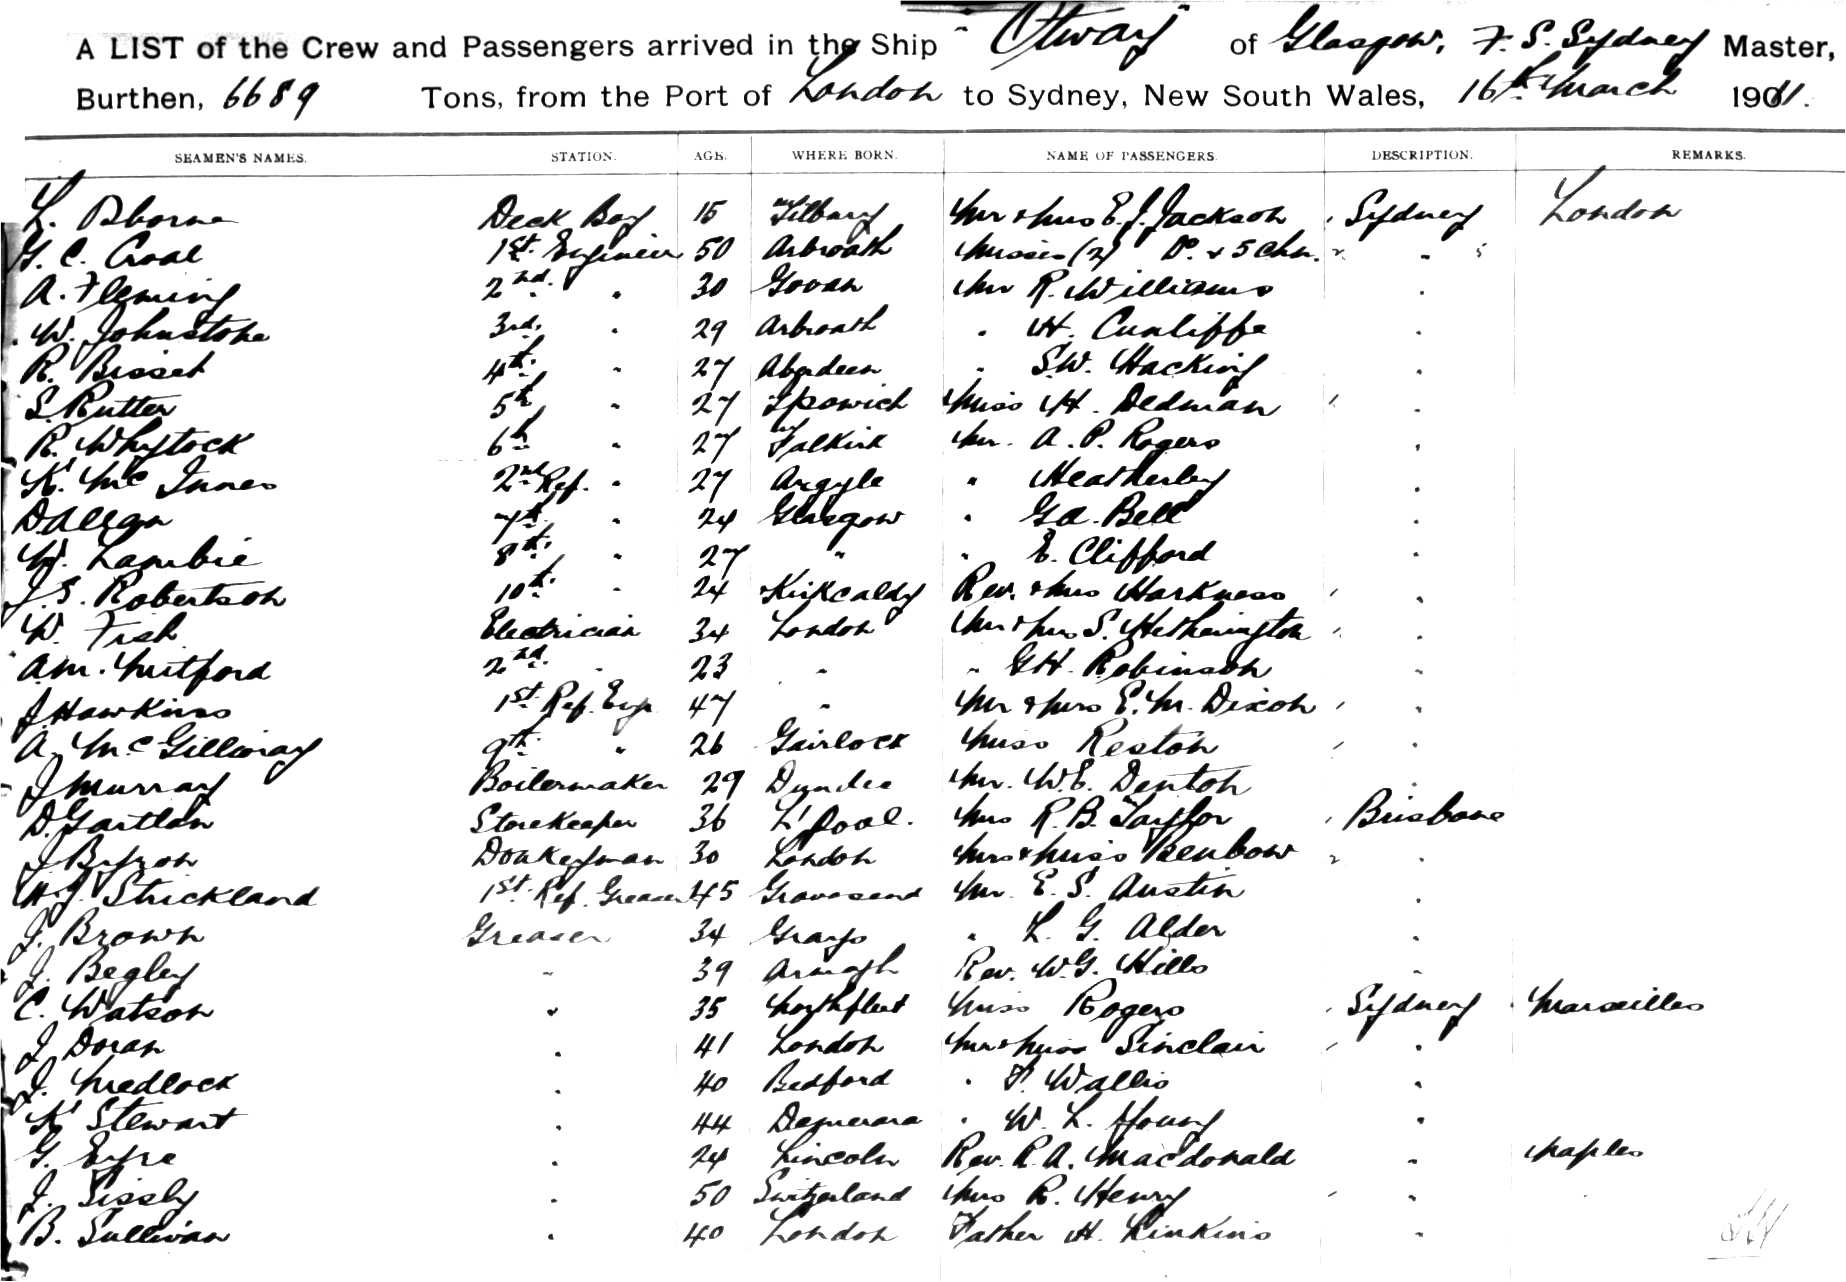 A LIST of the Crew and Passengers arrived in the Ship "Otway" of Glasgow, F. S. Sydney Master,
Burthen, 6689 Tons, from the Port of London to Sydney, New South Wales, 16th March 1911.
SEAMEN'S NAMES. STATION. AGE. WHERE BORN. NAME OF PASSENGERS. DESCRIPTION. REMARKS.
L. Osborne Deck Boy 15 Tilbury Mr & Mrs E. J. Jackson Sydney London
G. C. Croal 1st. Engineer 50 Arbroath Misses (2) Do. & 5 Chn. " " "
A. Fleming 2nd. " 30 Govan Mr R. Williams "
W. Johnstone 3rd. " 29 Arbroath " H. Cunliffe "
R. Bisset 4th. " 27 Aberdeen " S.W. Hacking "
S. Rutter 5th " 27 Ipswich Miss H. Dedman "
R. Whytock 6th " 27 Falkirk Mr. A. P. Rogers "
K. McInnes 2nd Ref. " 27 Argyle " Heatherley "
D Allan 7th. " 24 Glasgow " G.A. Bell "
W. Lambie 8th. " 27 " " E. Clifford "
J. S. Robertson 10th. " 24 Kirkcaldy Rev. & Mrs Harkness "
W. Fish Electrician 34 London Mr & Mrs S. Hetherington "
A.M. Mitford 2nd. " 23 " " G.H. Robinson "
J Hawkins 1st. Ref. Eng. 47 " Mr & Mrs E. M. Dixon "
A. McGillivray 9th. " 26 Gairlock Miss Reston "
J Murray Boilermaker 29 Dundee Mr. W.E. Denton "
D. Gartlan Storekeeper 36 L'pool. Mrs R. B. Taylor Brisbane
J Byron Donkeyman 30 London Mrs & Miss Benbow "
H. J. Strickland 1st. Ref. Greaser 45 Gravesend Mr E. S. Austin "
J. Brown Greaser 34 Grays " L. G. Alder "
J. Begley " 39 Armagh Rev. W.G. Hills "
C. Watson " 35 Northfleet Miss Rogers Sydney Marseilles
J Doran " 41 London Mr & Miss Sinclair "
J. Medlock " 40 Bedford " F. Wallis "
K Stewart " 44 Demerara " W. L. Young "
G. Eyre " 24 Lincoln Rev. R. A. Macdonald " Naples
J. Sissly " 50 Switzerland Mrs R. Henry "
B. Sullivan " 40 London Father H. Linkins "